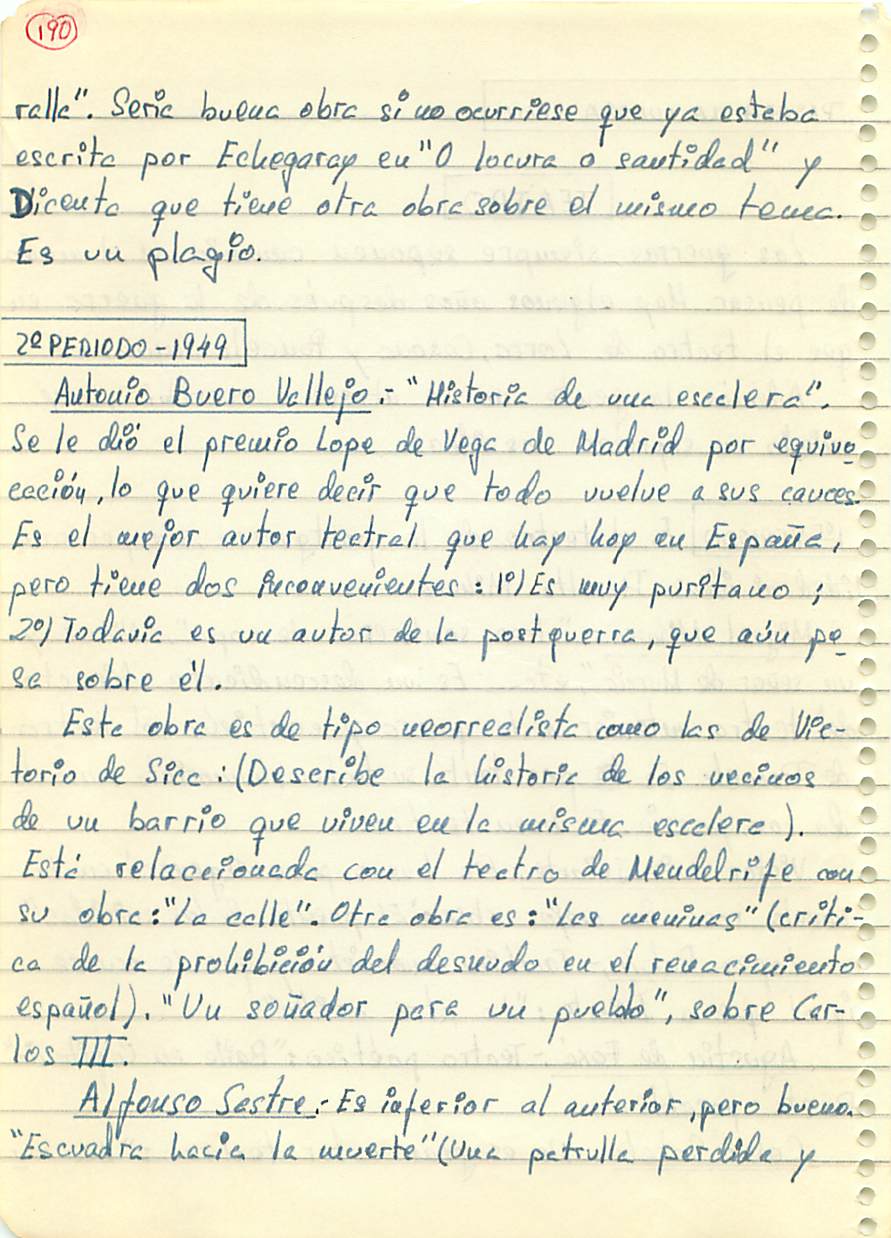 190
ralla". Seria buena obra si no ocurriese que ya estaba
escrita por Echegaray en "O locura o santidad" y
Dicenta que tiene otra obra sobre el mismo tema.
Es un plagio.
2º PERIODO - 1949
Antonio Buero Vallejo.- "Historia de una escalera".
Se le dió el premio Lope de Vega de Madrid por equivo
cación, lo que quiere decir que todo vuelve a sus cauces.
Es el mejor autor teatral que hay hoy en España,
pero tiene dos inconvenientes: 1º) Es muy puritano;
2º) Todavia es un autor de la postguerra, que aún pe
sa sobre él.
Esta obra es de tipo neorrealista como las de Vic-
torio de Sica: (Describe la historia de los vecinos
de un barrio que viven en la misma escalera).
Está relacionada con el teatro de Mendelrife con
su obra: "La calle". Otra obra es: "Las meninas" (criti-
ca de la prohibición del desnudo en el renacimiento
español). "Un soñador para un pueblo", sobre Car-
los III.
Alfonso Sastre.- Es inferior al anterior, pero bueno.
"Escuadra hacia la muerte" (Una patrulla perdida y